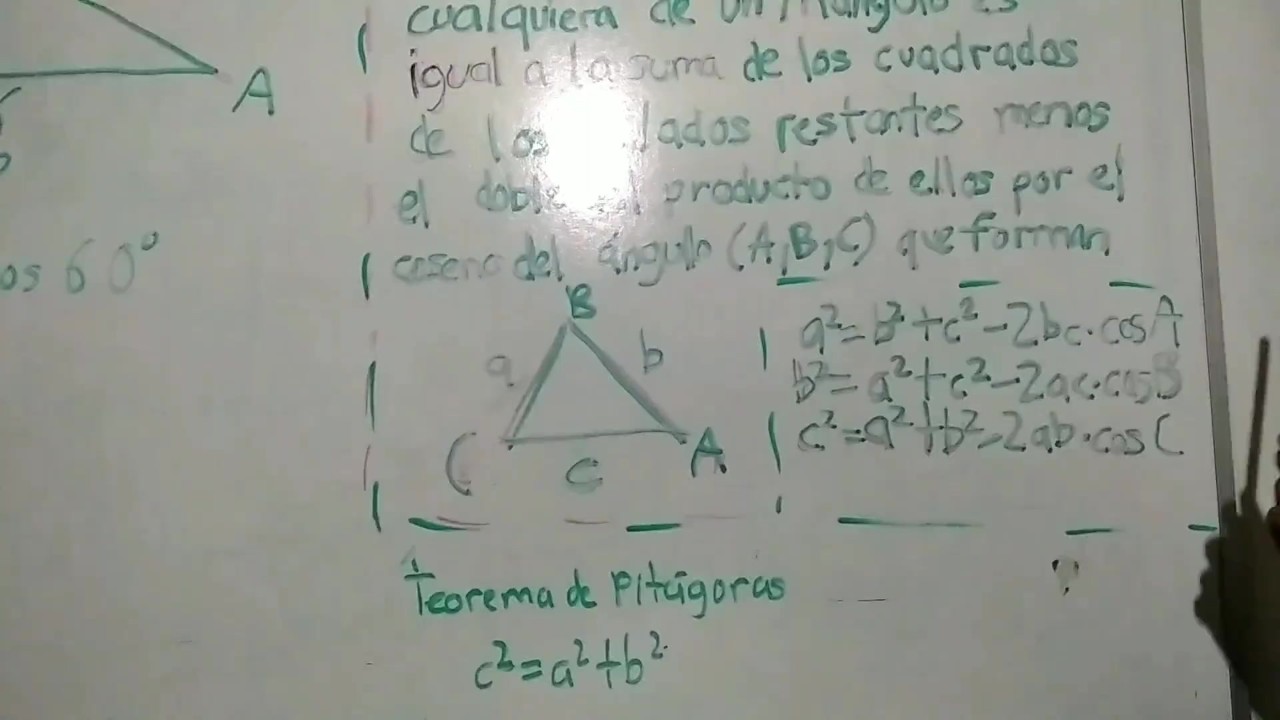 cualquiera de un triángulo es
igual a la suma de los cuadrados
de los lados restantes menos
el doble producto de ellos por el
coseno del ángulo (A,B,C) que forman
A
os 60°
B
a b
C c A
a²=b²+c²-2bc·cosA
b²=a²+c²-2ac·cosB
c²=a²+b²-2ab·cosC
Teorema de Pitágoras
c²=a²+b²